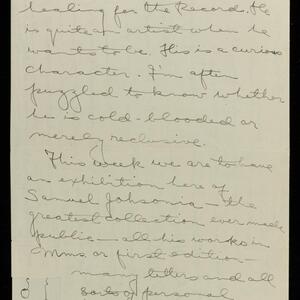 healing for the Record. He
is quite an artist when he
wants to be. His is a curious
character. I'm often
puzzled to know whether
he is cold-blooded or
merely reclusive.
This week we are to have
an exhibition here of
Samuel Johnsonia — the
greatest collection ever made
public — all his works in
Mms. or first edition —
many letters and all
sorts of personal